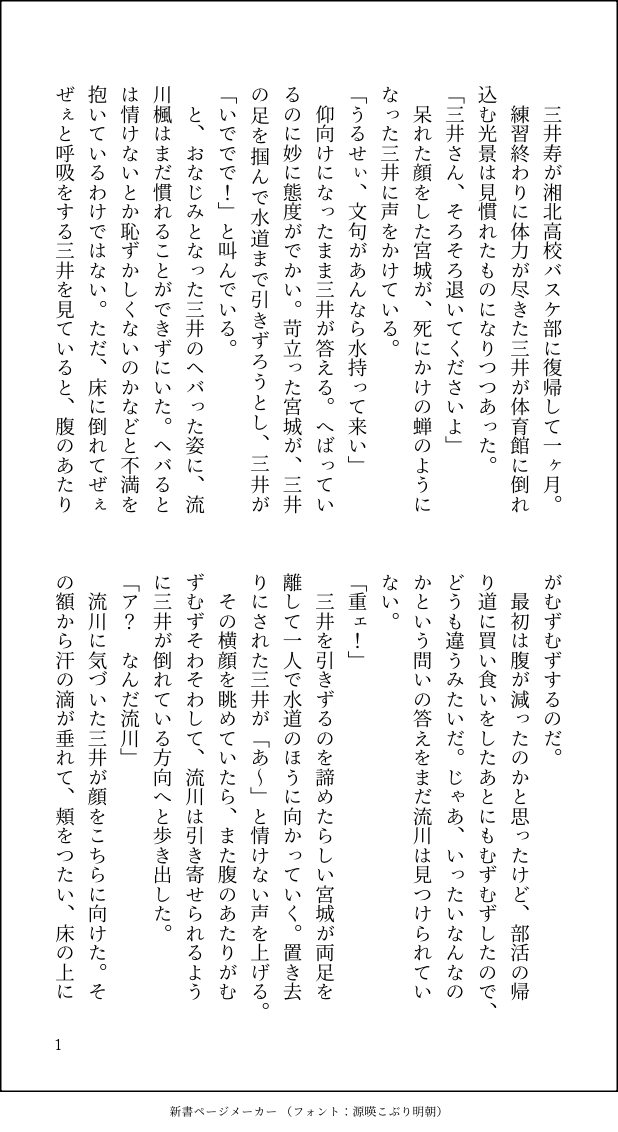 三井寿が湘北高校バスケ部に復帰して一ヶ月。
　練習終わりに体力が尽きた三井が体育館に倒れ
込む光景は見慣れたものになりつつあった。
「三井さん、そろそろ退いてくださいよ」
　呆れた顔をした宮城が、死にかけの蝉のように
なった三井に声をかけている。
「うるせぃ、文句があんなら水持って来い」
　仰向けになったまま三井が答える。へばってい
るのに妙に態度がでかい。苛立った宮城が、三井
の足を掴んで水道まで引きずろうとし、三井が
「いででで！」と叫んでいる。
　と、おなじみとなった三井のヘバった姿に、流
川楓はまだ慣れることができずにいた。ヘバると
は情けないとか恥ずかしくないのかなどと不満を
抱いているわけではない。ただ、床に倒れてぜぇ
ぜぇと呼吸をする三井を見ていると、腹のあたり
がむずむずするのだ。
　最初は腹が減ったのかと思ったけど、部活の帰
り道に買い食いをしたあとにもむずむずしたので、
どうも違うみたいだ。じゃあ、いったいなんなの
かという問いの答えをまだ流川は見つけられてい
ない。
「重ェ！」
　三井を引きずるのを諦めたらしい宮城が両足を
離して一人で水道のほうに向かっていく。置き去
りにされた三井が「あ～」と情けない声を上げる。
　その横顔を眺めていたら、また腹のあたりがむ
ずむずそわそわして、流川は引き寄せられるよう
に三井が倒れている方向へと歩き出した。
「ア？　なんだ流川」
　流川に気づいた三井が顔をこちらに向けた。そ
の額から汗の滴が垂れて、頬をつたい、床の上に
1
新書ページメーカー（フォント：源暎こぶり明朝）